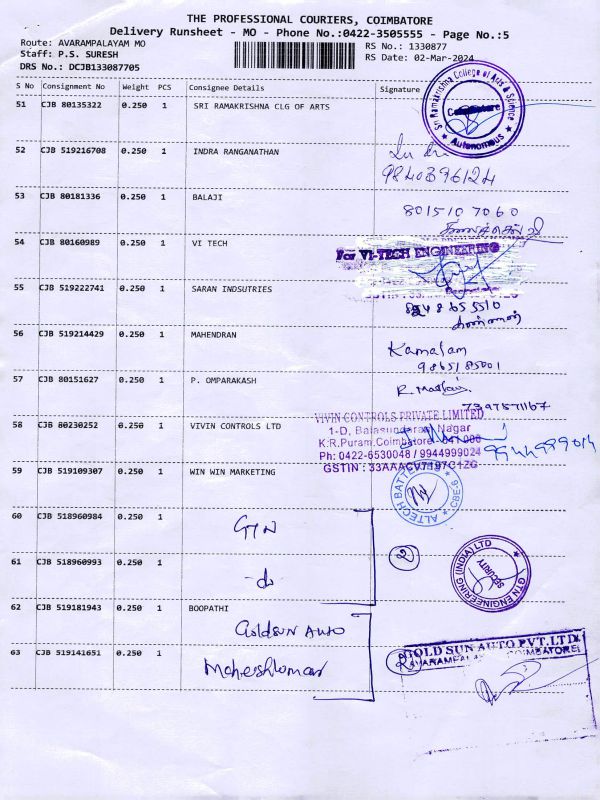 THE PROFESSIONAL COURIERS, COIMBATORE
Delivery Runsheet - MO - Phone No.:0422-3505555 - Page No.:5
Route: AVARAMPALAYAM MO RS No.: 1330877
Staff: P.S. SURESH RS Date: 02-Mar-2024
DRS No.: DCJB133087705
S No Consignment No Weight PCS Consignee Details Signature
51 CJB 80135322 0.250 1 SRI RAMAKRISHNA CLG OF ARTS
Sri Ramakrishna College of Arts & Science
Coimbatore
Autonomous
52 CJB 519216708 0.250 1 INDRA RANGANATHAN
9840396124
53 CJB 80181336 0.250 1 BALAJI
8015107060
54 CJB 80160989 0.250 1 VI TECH
For VI-TECH ENGINEERING
55 CJB 519222741 0.250 1 SARAN INDSUTRIES
56 CJB 519214429 0.250 1 MAHENDRAN
Kamalam
57 CJB 80151627 0.250 1 P. OMPARAKASH
58 CJB 80230252 0.250 1 VIVIN CONTROLS LTD
VIVIN CONTROLS PRIVATE LIMITED
1-D, Balasundaram Nagar
K.R.Puram, Coimbatore
Ph: 0422-6530048 / 9944999024
GSTIN : 33AAACV7197C1ZG
59 CJB 519109307 0.250 1 WIN WIN MARKETING
ALTECH CBE-6
60 CJB 518960984 0.250 1 GTN
61 CJB 518960993 0.250 1 -do- 2
GTN ENGINEERING (INDIA) LTD
SECURITY
62 CJB 519181943 0.250 1 BOOPATHI
Goldsun Auto
63 CJB 519141651 0.250 1 Maheshkumar
2 GOLD SUN AUTO PVT. LTD.
AVARAMPALA COIMBATORE